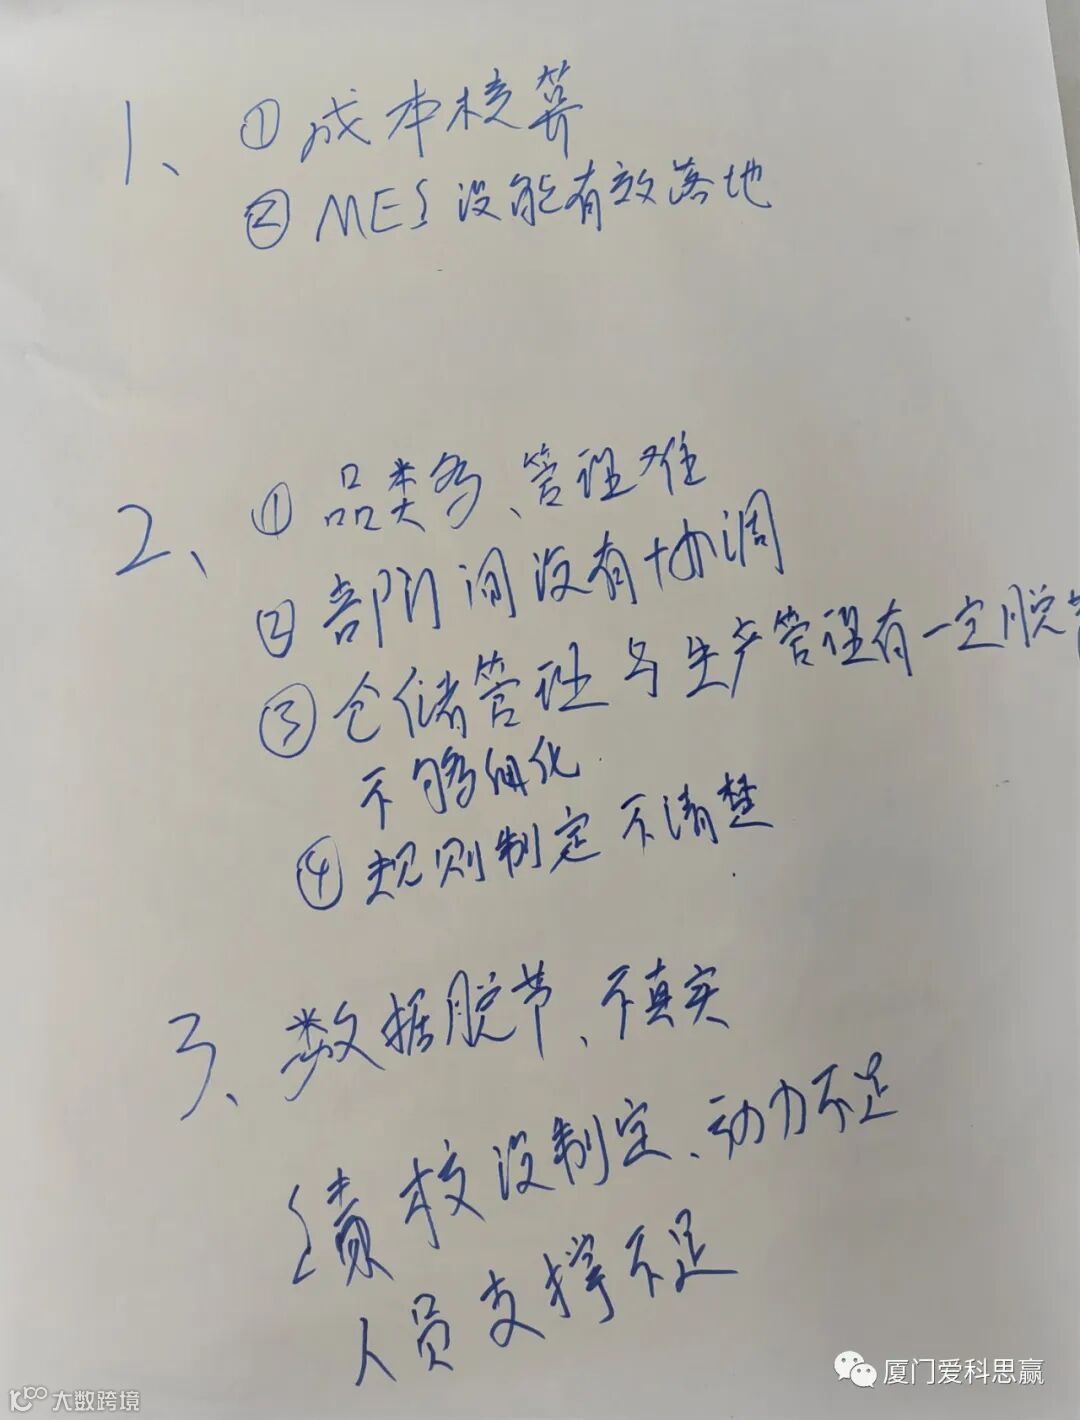 1、①成本核算
②MES没能有效落地
2、①品类多、管理难
②部门间没有协调
③仓储管理与生产管理有一定脱节
不够细化
④规则制定不清楚
3、数据脱节、不真实
绩校没制定、动力不足
人员支撑不足
厦门爱科思赢
大数跨境